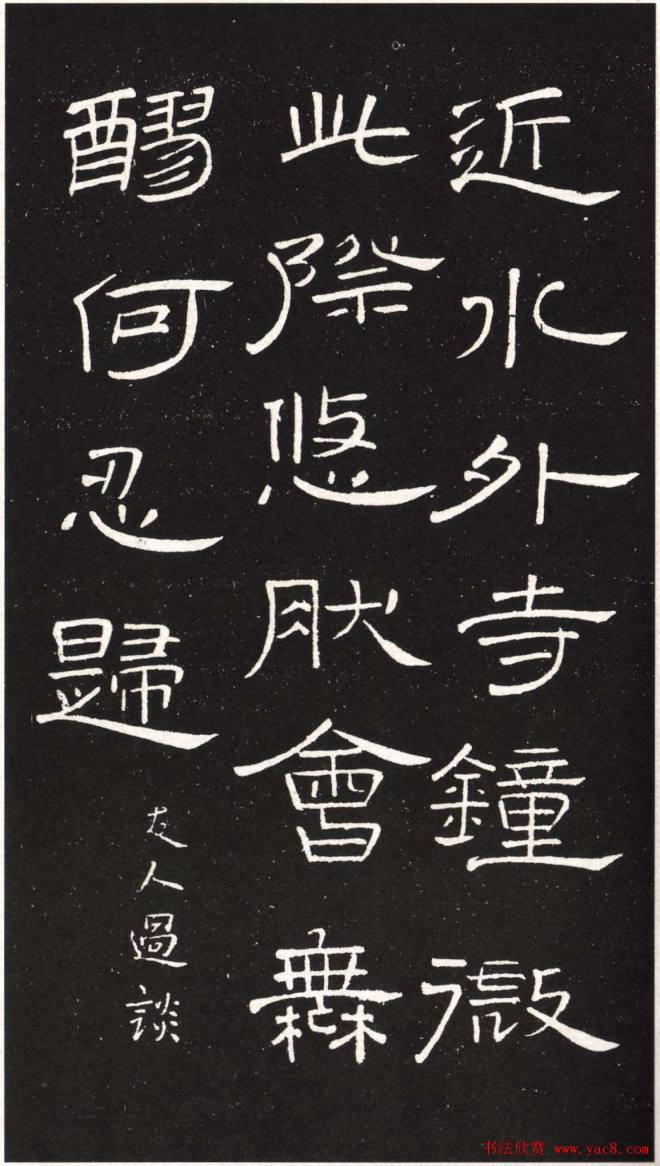 近水外寺鐘微
此際悠肰會橆
醪何忍歸
友人過談
书法欣赏 www.yac8.com